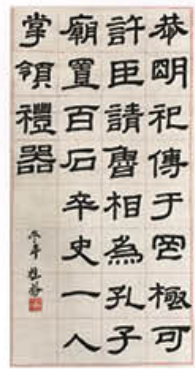 恭明祀傳于罔極可
許臣請魯相為孔子
廟置百石卒史一人
掌領禮器